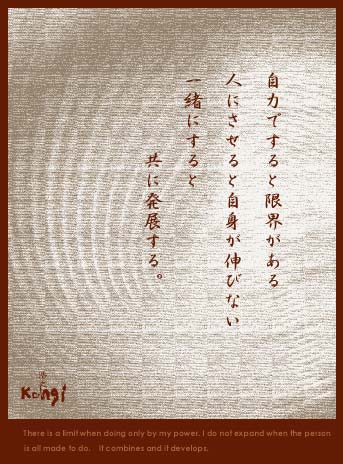 自力ですると限界がある
人にさせると自身が伸びない
一緒にすると
共に発展する。
Kongi
There is a limit when doing only by my power. I do not expand when the person
is all made to do. It combines and it develops.